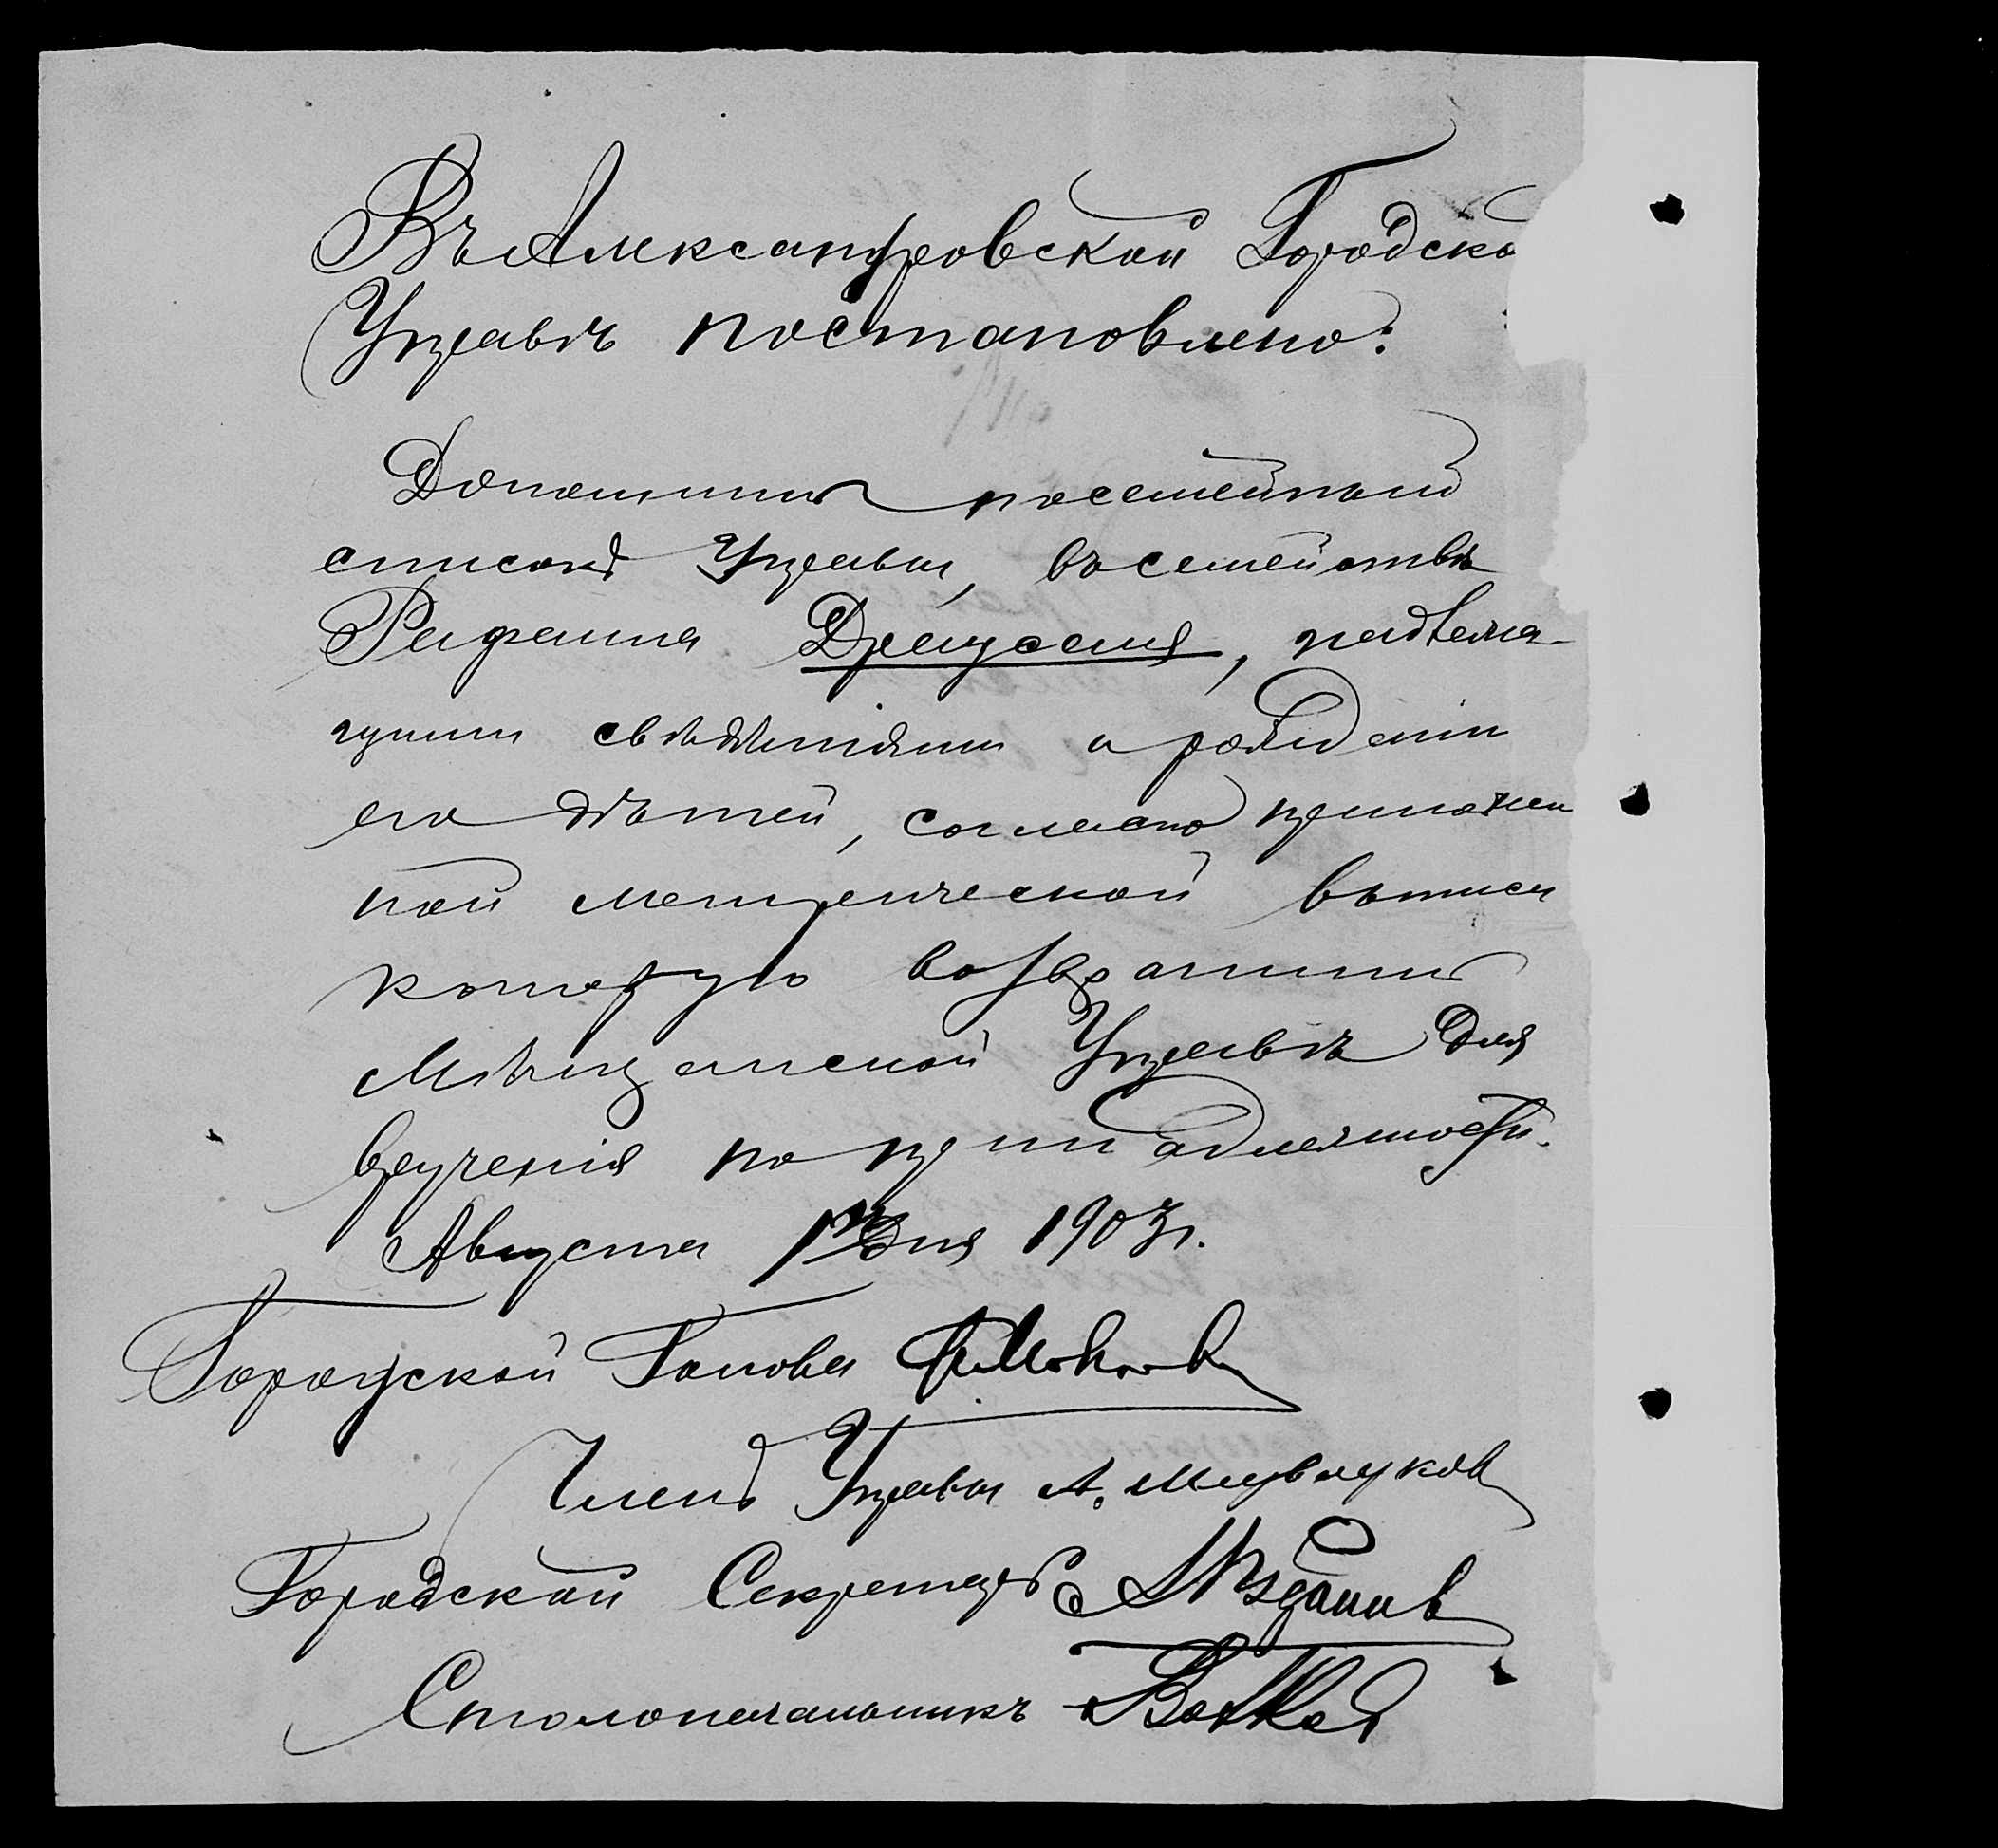 Въ Александровской Городско
Управѣ постановлено:
Дополнить посемейный
списокъ Управы, въ семействѣ
Рафаила Драусаля, надлежа-
щими свѣдѣніями о рожденіи
его дѣтей, согласно приложен
ной метрической выписи
которую возвратить
Мѣщанской Управѣ для
врученія по принадлежности.
Августа дня 1903 г.
Городской Голова
Членъ Управы А.
Городской Секретарь
Столоначальникъ Волковъ